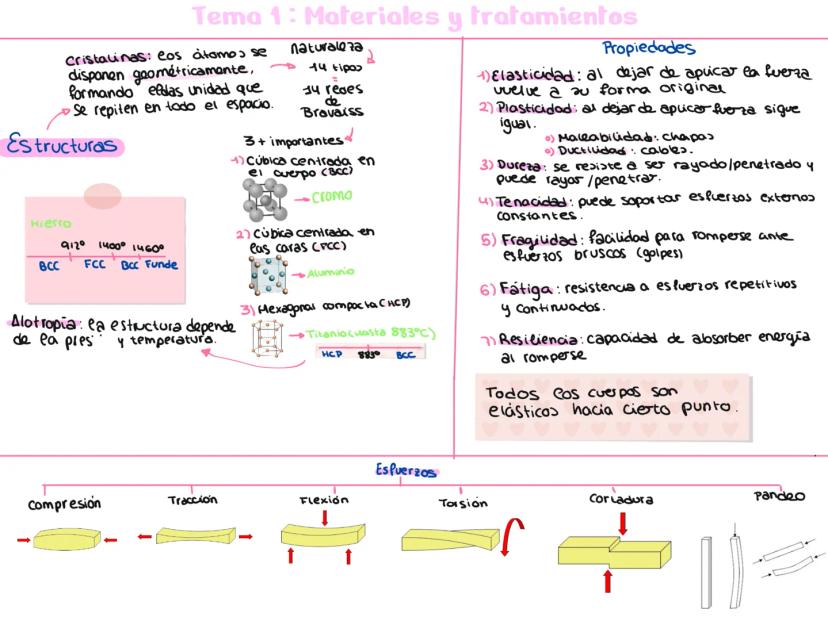 Tema 1: Materiales y tratamientos
cristalinas: los átomos se
disponen geométricamente,
formando eldas unidad que
se repiten en todo el espacio.
Naturaleza
14 tipos
=
14 redes
de
Bravaiss
Estructuras
3 + importantes
1) Cúbica centrada en
el cuerpo (BCC)
Cromo
2) Cúbica centrada en
las caras (FCC)
Aluminio
3) Hexagonal compacta (HCP)
Titanio (hasta 883ºC)
HCP 883º BCC
Hierro
912º 1400º 1460º
BCC FCC BCC Funde
Alotropía: la estructura depende
de la pres y temperatura.
Propiedades
1) Elasticidad: al dejar de aplicar la fuerza
vuelve a su forma original
2) Plasticidad: al dejar de aplicar fuerza sigue
igual.
o) Maleabilidad: chapas
o) Ductilidad: cables.
3) Dureza: se resiste a ser rayado/penetrado y
puede rayar /penetrar.
4) Tenacidad: puede soportar esfuerzos externos
constantes.
5) Fragilidad: facilidad para romperse ante
esfuerzos bruscos (golpes)
6) Fátiga: resistencia a esfuerzos repetitivos
y continuados.
7) Resiliencia: capacidad de absorber energía
al romperse
Todos los cuerpos son
elásticos hacia cierto punto.
Esfuerzos
Compresión
Tracción
Flexión
Torsión
Cortadura
Pandeo